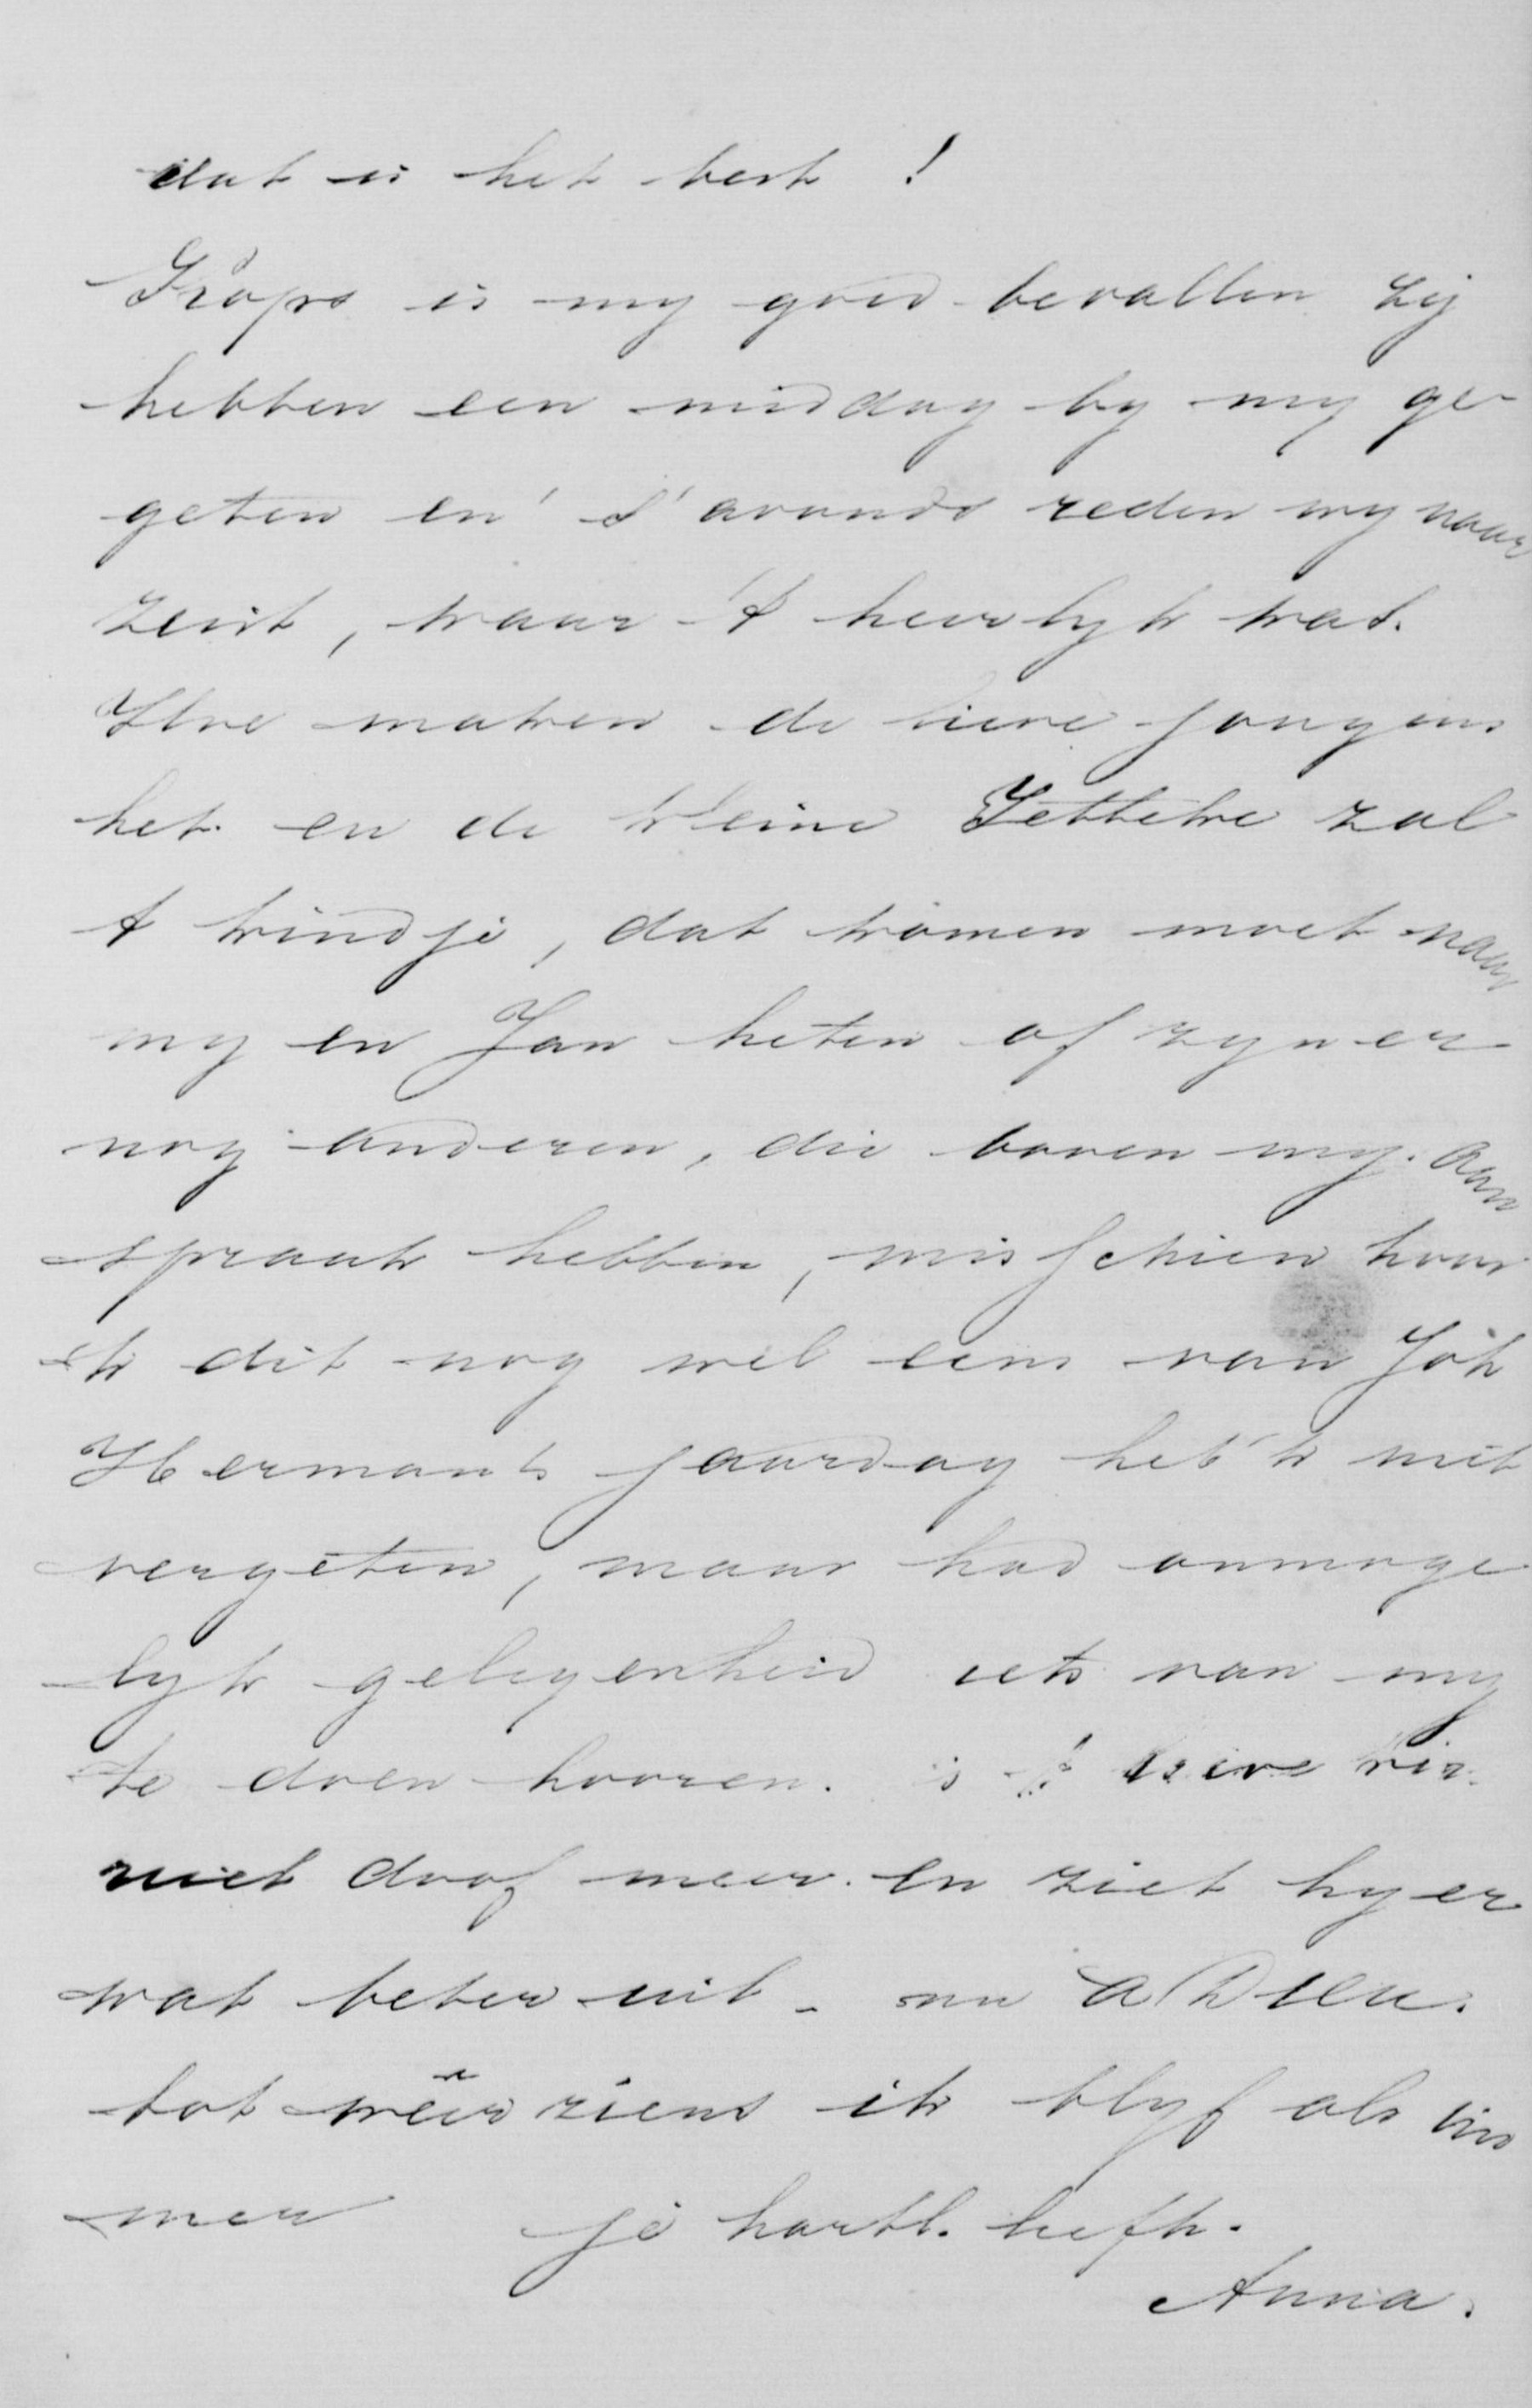 dat is het best!
Props is my goed bevallen zij
hebben een middag by my ge-
geten en 's avonds reden wy naar
Zeist, waar 't heerlyk was.
Hoe maken de lieve jongens
het en de kleine Jetteke zal
't kindje, dat komen moet naar
my en Jan heten of zyn er
nog anderen, die boven my aan
spraak hebben, misschien hoor
ik dit nog wel eens van Joh
Hermans jaardag heb 'k niet
vergeten, maar had onmoge
lyk gelegenheid iets van my
te doen hooren. is 't lieve
niet doof meer. en ziet hy er
wat beter uit - nu adieu.
tot weer ziens ik blyf als im
mer je hartl. liefh.
Anna.